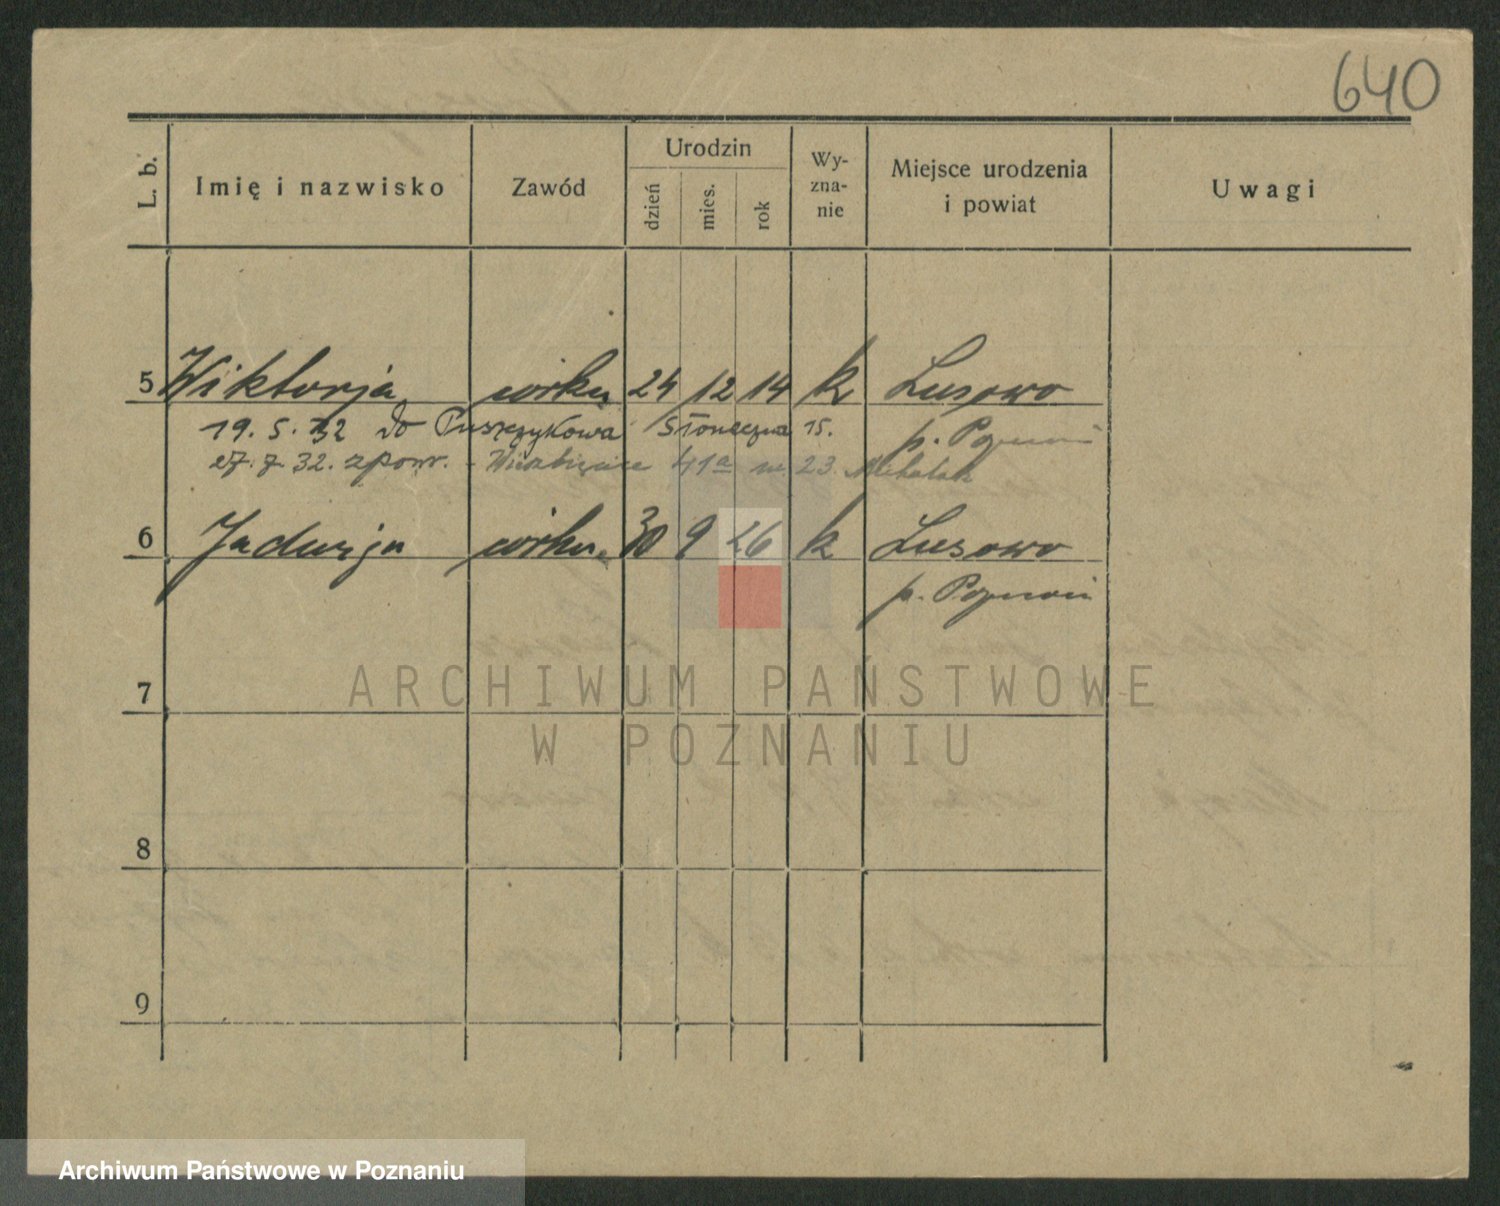 640
L. b. Imię i nazwisko Zawód Urodzin dzień mies. rok Wy-zna-nie Miejsce urodzenia i powiat Uwagi
5 Wiktorja córka 24 12 14 k Lusowo
19. 5. 32 do Puszczykowa Słoneczna 15. p. Poznań
27. 7. 32. zpow. 41a m. 23.
6 Jadwiga córka 30 9 26 k Lusowo
p. Poznań
7
8
9
ARCHIWUM PAŃSTWOWE
W POZNANIU
Archiwum Państwowe w Poznaniu